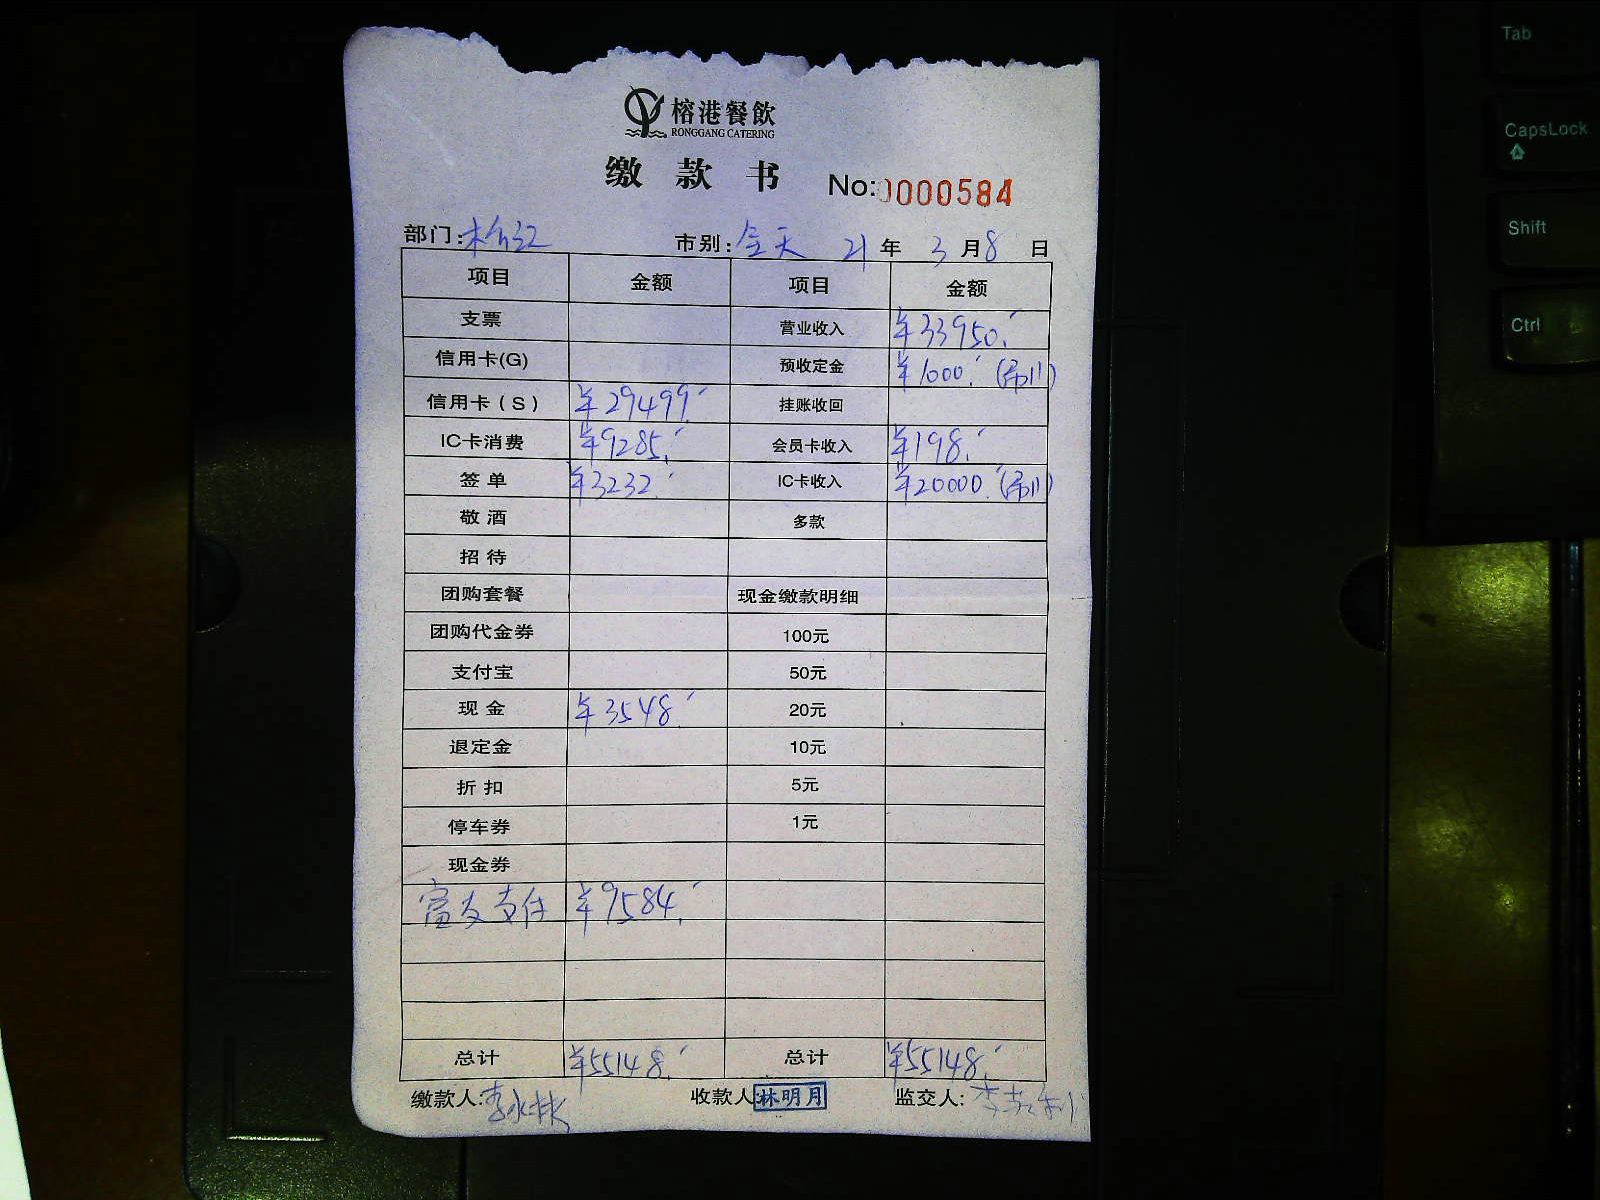 榕港餐飲
RONGGANG CATERING
缴 款 书 No:0000584
部门: 市别:全天 21 年 3 月 8 日
项目 金额 项目 金额
支票 营业收入 ¥33950.
信用卡(G) 预收定金 ¥1000.
信用卡(S) ¥29499 挂账收回
IC卡消费 ¥9285. 会员卡收入 ¥198.
签单 ¥3232. IC卡收入 ¥20000.
敬酒 多款
招待
团购套餐 现金缴款明细
团购代金券 100元
支付宝 50元
现金 ¥3548. 20元
退定金 10元
折扣 5元
停车券 1元
现金券
富友支付 ¥9584.
总计 ¥55148. 总计 ¥55148.
缴款人:李水林 收款人 林明月 监交人:
Tab
CapsLock
Shift
Ctrl